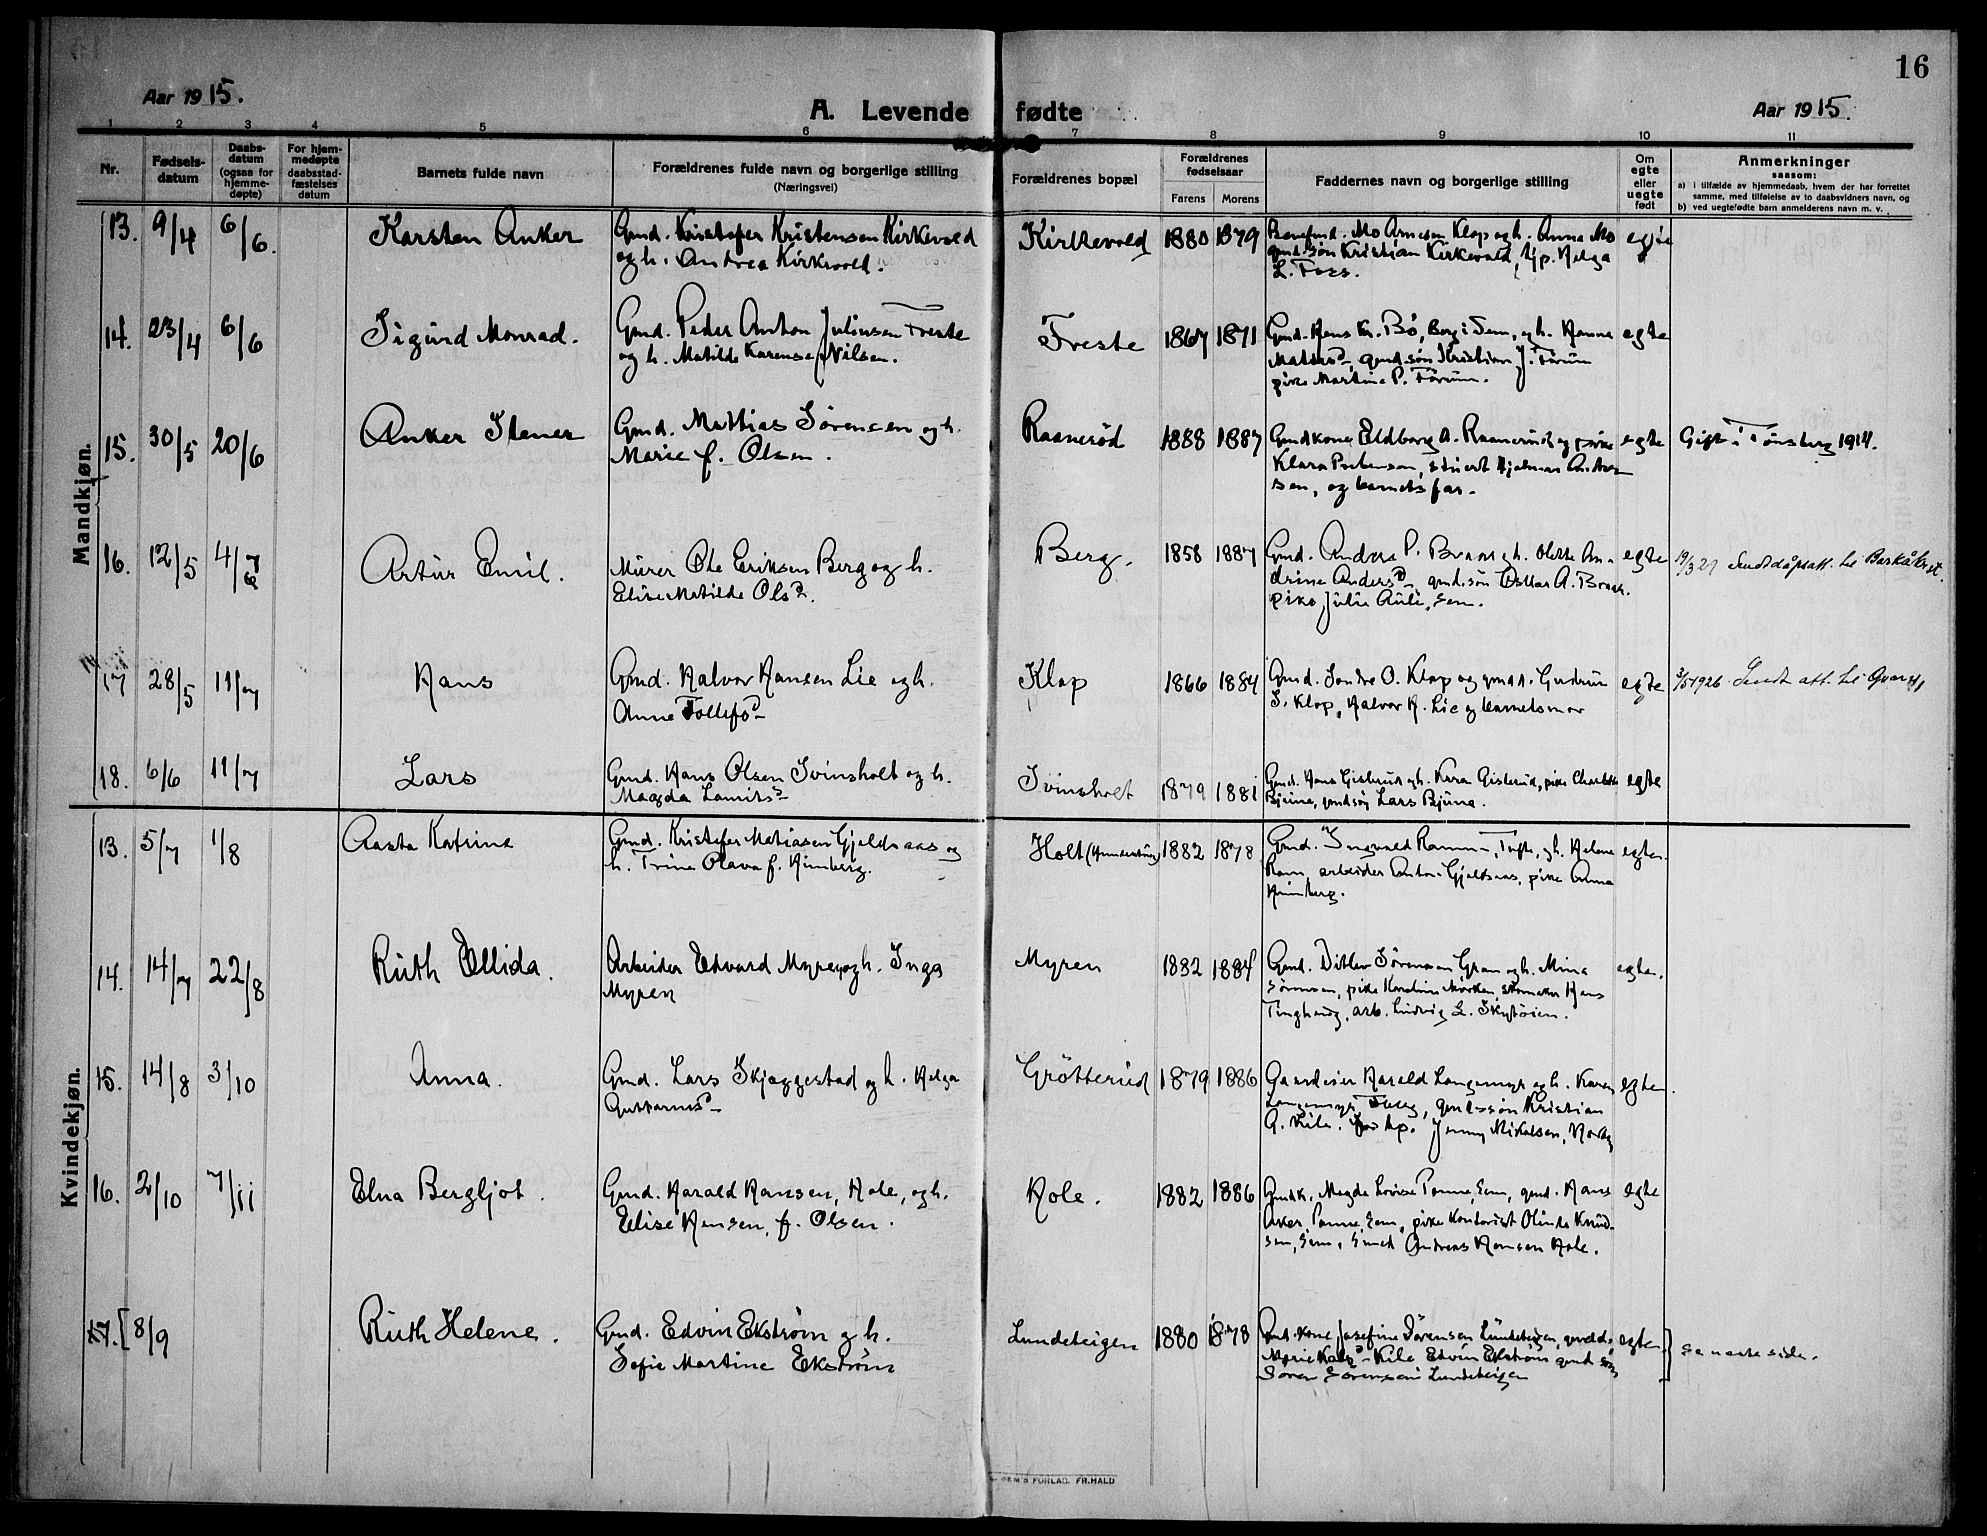 16
Aar 1915.
A. Levende fødte
Aar 1915.
1 2 3 4 5 6 7 8 9 10 11
Nr.
Fødsels-
datum
Daabs-
datum
(ogsaa for
hjemme-
døpte)
For hjem-
medøpte
daabsstad-
fæstelses
datum
Barnets fulde navn
Forældrenes fulde navn og borgerlige stilling
(Næringsvei)
Forældrenes bopæl
Forældrenes
fødselsaar
Farens Morens
Faddernes navn og borgerlige stilling
Om
egte
eller
uegte
født
Anmerkninger
saasom:
a) i tilfælde av hjemmedaab, hvem der har forrettet
samme, med tilføielse av to daabsvidners navn, og
b) ved uegtefødte barn anmelderens navn m. v.
Mandkjøn.
13. 9/4 6/6. Karsten Anker Gmd. Kristofer Kristensen Kirkevold Kirkevold 1880 1879 Mo Arnesen Klop og h. Anna Mo egte
og h. Andrea Kirkevold. gmd.søn Kristian Kirkevold, Helga
L. Foss.
14. 23/4 6/6 Sigurd Monrad. Gmd. Peder Anton Julinsen Freste Freste 1867 1871 Gmd. Hans Kr. Bö, Berg i Sem, og h. Hanna egte
og h. Matilde Karense Nilsen. gmd.søn Kristian J. Förum
pike Martine P. Förum.
15. 30/5 20/6 Anker Stener Gmd. Mattias Sörensen og h. Raaneröd 1888 1887 Gmdkone Eldborg A. Raanerud og pike egte Gift i Tönsberg 1914.
Marie f. Olsen. Klara Pedersen, Hjalmar Andrea
sen, og barnets far.
16. 12/5 4/7 Artur Emil. Murer Ole Eriksen Berg og h. Berg. 1858 1887 Gmd. Anders P. Braar og h. Olette An- egte 19/3 27 Sendt dåpsatt. til
Elise Matilde Olsd. drine Andersd., gmd.søn Oskar A. Braar.
pike Julie Auli, Sem.
17 28/5 11/7 Hans Gmd. Halvor Hansen Lie og h. Klop 1866 1884 Gmd. Sondre O. Klop og gmd.d. Gudrun egte 3/5 1926 Sendt att. til
Anne Tollefsd. S. Klop, Halvor H. Lie og barnets mor
18. 6/6 11/7 Lars Gmd. Hans Olsen Svinsholt og h. Svinsholt 1879 1881 Gmd. Hans Gisterud og h. Kara Gisterud, pike Charlotte egte
Magda Lauritsd. Bjune, gmdsøn Lars Bjune.
Kvindekjøn.
13. 5/7 1/8 Aasta Katrine Gmd. Kristofer Matiasen Gjeldsaas og Holt 1882 1878 Gmd. Ingvald Ramm, Tufte, og h. Helene egte.
h. Trine Olava f. Himberg. Ram, arbeider Anton Gjeldsaas, pike Anna
Himberg.
14. 14/7 22/8 Ruth Ellida. Arbeider Edvard Myren og h. Inga Myren 1882 1884 Gmd. Ditlev Sörensen Gran og h. Mina egte.
Myren Sörensen, pike Mörken, skomaker Hans
Tinghaug, arb. Ludvig L. Skytöien.
15. 14/8 3/10 Anna. Gmd. Lars Skjeggestad og h. Helga Grötterud 1879 1886 Gaardeier Harald Langemyr og h. Karen egte
Guttormsd. Langemyr, gmdssøn Kristian
A. Kile. Jenny Mikalsen,
16. 2/10 7/11 Elna Bergljot. Gmd. Harald Hansen, Hole, og h. Hole. 1882 1886 Gmdk. Magda Lovise Tanne, Sem, gmd. Hans egte
Elise Hansen, f. Olsen. Aker, Tanne, Sem, pike kontorist Olinda Knud-
sen, Sem, Smed Andreas Hansen Hole.
17. [8/9 Ruth Helene. Gmd. Edvin Ekström og h. Lundeteigen 1880 1878 Gmd.kone Josefine Sörensen Lundeteigen, gmdd. egte.] se neste side.
Sofie Martine Ekström Marie Kile Edvin Ekström gmd.søn
Sören Sörensen Lundeteigen
FORLAG. FR.HALD